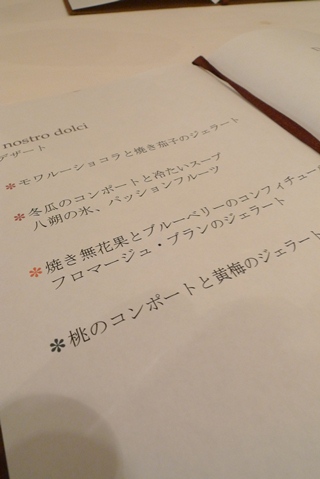 nostro dolci
デザート
*モワルーショコラと焼き茄子のジェラート
*冬瓜のコンポートと冷たいスープ
八朔の氷、パッションフルーツ
*焼き無花果とブルーベリーのコンフィチュール
フロマージュ・ブランのジェラート
*桃のコンポートと黄梅のジェラート